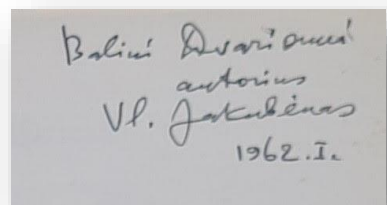 Baliui Dvarionui
autorius
Vl. Jakubėnas
1962.I.